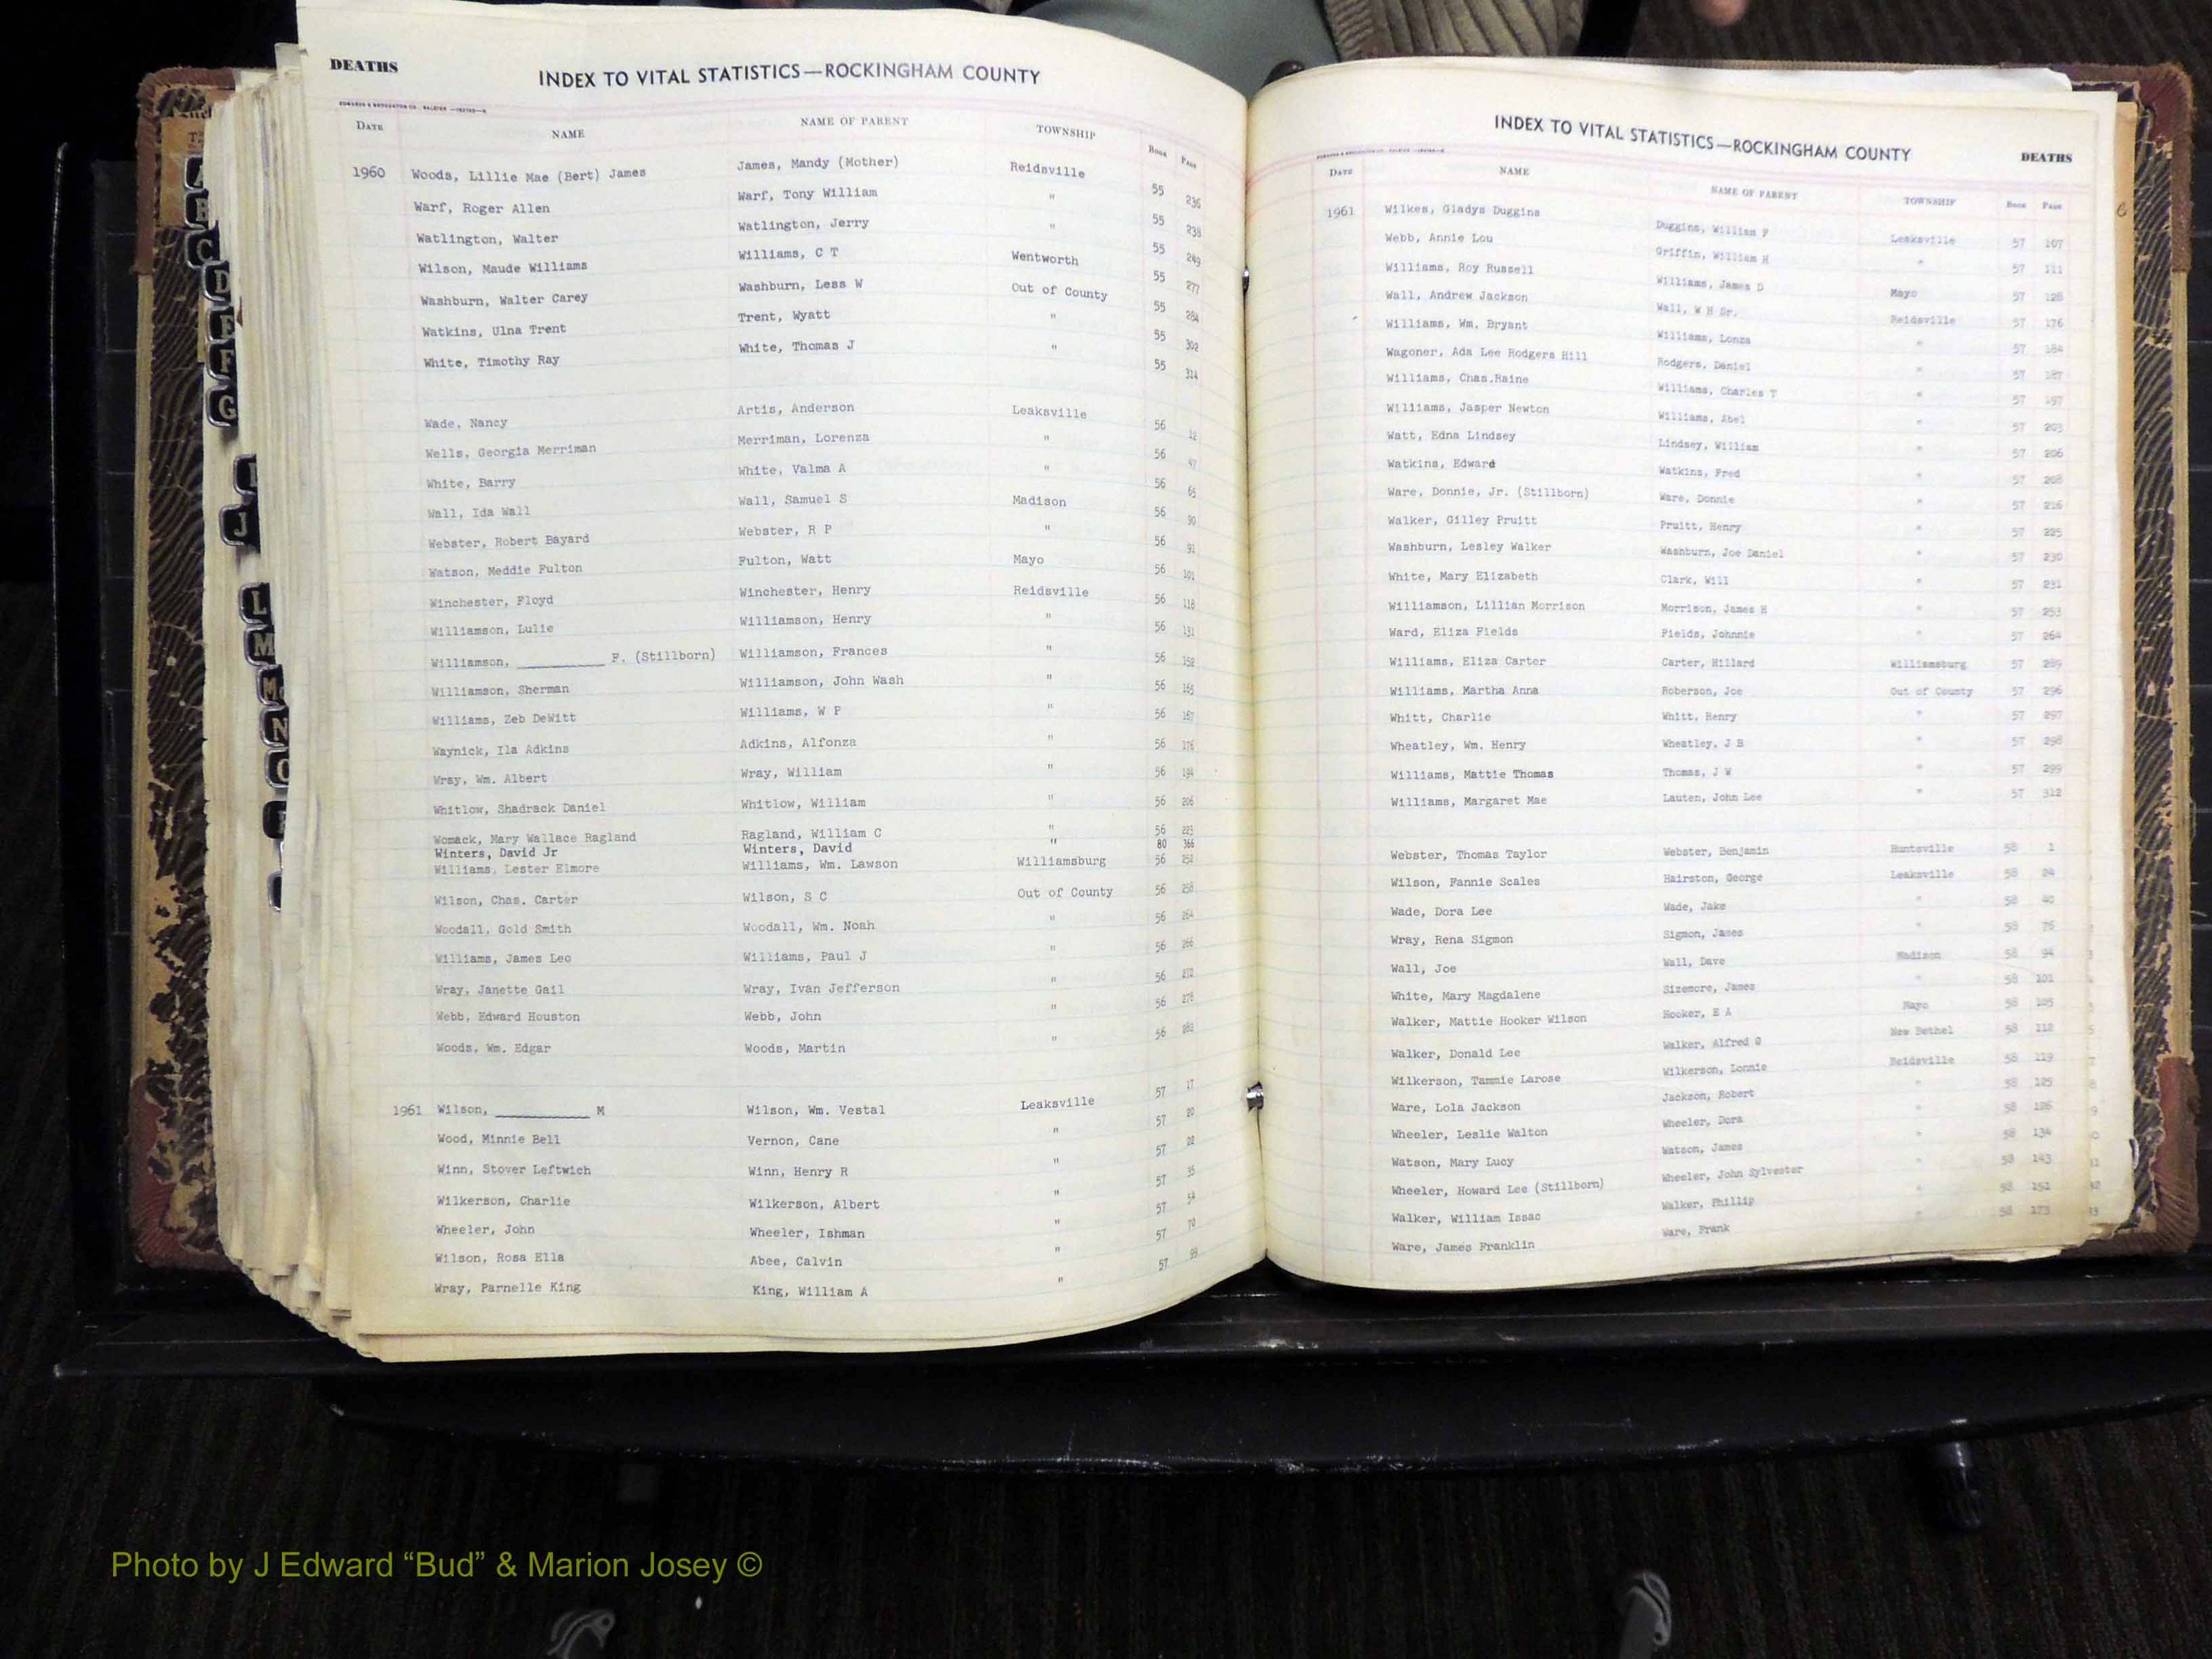 DEATHS
INDEX TO VITAL STATISTICS—ROCKINGHAM COUNTY
DATE NAME NAME OF PARENT TOWNSHIP Book Page
1960 Woods, Lillie Mae (Bert) James James, Mandy (Mother) Reidsville 55 236
Warf, Roger Allen Warf, Tony William " 55 238
Watlington, Walter Watlington, Jerry " 55 249
Wilson, Maude Williams Williams, C T Wentworth 55 277
Washburn, Walter Carey Washburn, Less W Out of County 55 284
Watkins, Ulna Trent Trent, Wyatt " 55 302
White, Timothy Ray White, Thomas J " 55 314
Wade, Nancy Artis, Anderson Leaksville 56 12
Wells, Georgia Merriman Merriman, Lorenza " 56 47
White, Barry White, Valma A " 56 65
Wall, Ida Wall Wall, Samuel S Madison 56 90
Webster, Robert Bayard Webster, R P " 56 91
Watson, Meddie Fulton Fulton, Watt Mayo 56 101
Winchester, Floyd Winchester, Henry Reidsville 56 118
Williamson, Lulie Williamson, Henry " 56 131
Williamson, __________ F. (Stillborn) Williamson, Frances " 56 152
Williamson, Sherman Williamson, John Wash " 56 165
Williams, Zeb DeWitt Williams, W P " 56 167
Waynick, Ila Adkins Adkins, Alfonza " 56 176
Wray, Wm. Albert Wray, William " 56 194
Whitlow, Shadrack Daniel Whitlow, William " 56 206
Womack, Mary Wallace Ragland Ragland, William C " 56 223
Winters, David Jr Winters, David " 80 366
Williams, Lester Elmore Williams, Wm. Lawson Williamsburg 56 252
Wilson, Chas. Carter Wilson, S C Out of County 56 258
Woodall, Gold Smith Woodall, Wm. Noah " 56 264
Williams, James Leo Williams, Paul J " 56 266
Wray, Janette Gail Wray, Ivan Jefferson " 56 272
Webb, Edward Houston Webb, John " 56 278
Woods, Wm. Edgar Woods, Martin " 56 282
1961 Wilson, __________ M Wilson, Wm. Vestal Leaksville 57 17
Wood, Minnie Bell Vernon, Cane " 57 20
Winn, Stover Leftwich Winn, Henry R " 57 22
Wilkerson, Charlie Wilkerson, Albert " 57 35
Wheeler, John Wheeler, Ishman " 57 54
Wilson, Rosa Ella Abee, Calvin " 57 70
Wray, Parnelle King King, William A " 57
INDEX TO VITAL STATISTICS—ROCKINGHAM COUNTY
DEATHS
DATE NAME NAME OF PARENT TOWNSHIP Book Page
1961 Wilkes, Gladys Duggins Duggins, William F Leaksville 57 107
Webb, Annie Lou Griffin, William H " 57 111
Williams, Roy Russell Williams, James D Mayo 57 128
Wall, Andrew Jackson Wall, W H Sr. Reidsville 57 176
Williams, Wm. Bryant Williams, Lonza " 57 184
Wagoner, Ada Lee Rodgers Hill Rodgers, Daniel " 57 187
Williams, Chas.Raine Williams, Charles T " 57 197
Williams, Jasper Newton Williams, Abel " 57 203
Watt, Edna Lindsey Lindsey, William " 57 206
Watkins, Edward Watkins, Fred " 57 208
Ware, Donnie, Jr. (Stillborn) Ware, Donnie " 57 216
Walker, Gilley Pruitt Pruitt, Henry " 57 225
Washburn, Lesley Walker Washburn, Joe Daniel " 57 230
White, Mary Elizabeth Clark, Will " 57 231
Williamson, Lillian Morrison Morrison, James H " 57 253
Ward, Eliza Fields Fields, Johnnie " 57 264
Williams, Eliza Carter Carter, Hillard Williamsburg 57 289
Williams, Martha Anna Roberson, Joe Out of County 57 296
Whitt, Charlie Whitt, Henry " 57 297
Wheatley, Wm. Henry Wheatley, J B " 57 298
Williams, Mattie Thomas Thomas, J W " 57 299
Williams, Margaret Mae Lauten, John Lee " 57 312
Webster, Thomas Taylor Webster, Benjamin Huntsville 58 1
Wilson, Fannie Scales Hairston, George Leaksville 58 24
Wade, Dora Lee Wade, Jake " 58 40
Wray, Rena Sigmon Sigmon, James " 58 76
Wall, Joe Wall, Dave Madison 58 94
White, Mary Magdalene Sizemore, James " 58 101
Walker, Mattie Hooker Wilson Hooker, E A Mayo 58 105
Walker, Donald Lee Walker, Alfred G New Bethel 58 112
Wilkerson, Tammie Larose Wilkerson, Lonnie Reidsville 58 119
Ware, Lola Jackson Jackson, Robert " 58 125
Wheeler, Leslie Walton Wheeler, Dora " 58 126
Watson, Mary Lucy Watson, James " 58 134
Wheeler, Howard Lee (Stillborn) Wheeler, John Sylvester " 58 143
Walker, William Issac Walker, Phillip " 58 151
Ware, James Franklin Ware, Frank " 58 173
A
B
C
D
E
F
G
J
L
M
N
Photo by J Edward “Bud” & Marion Josey ©